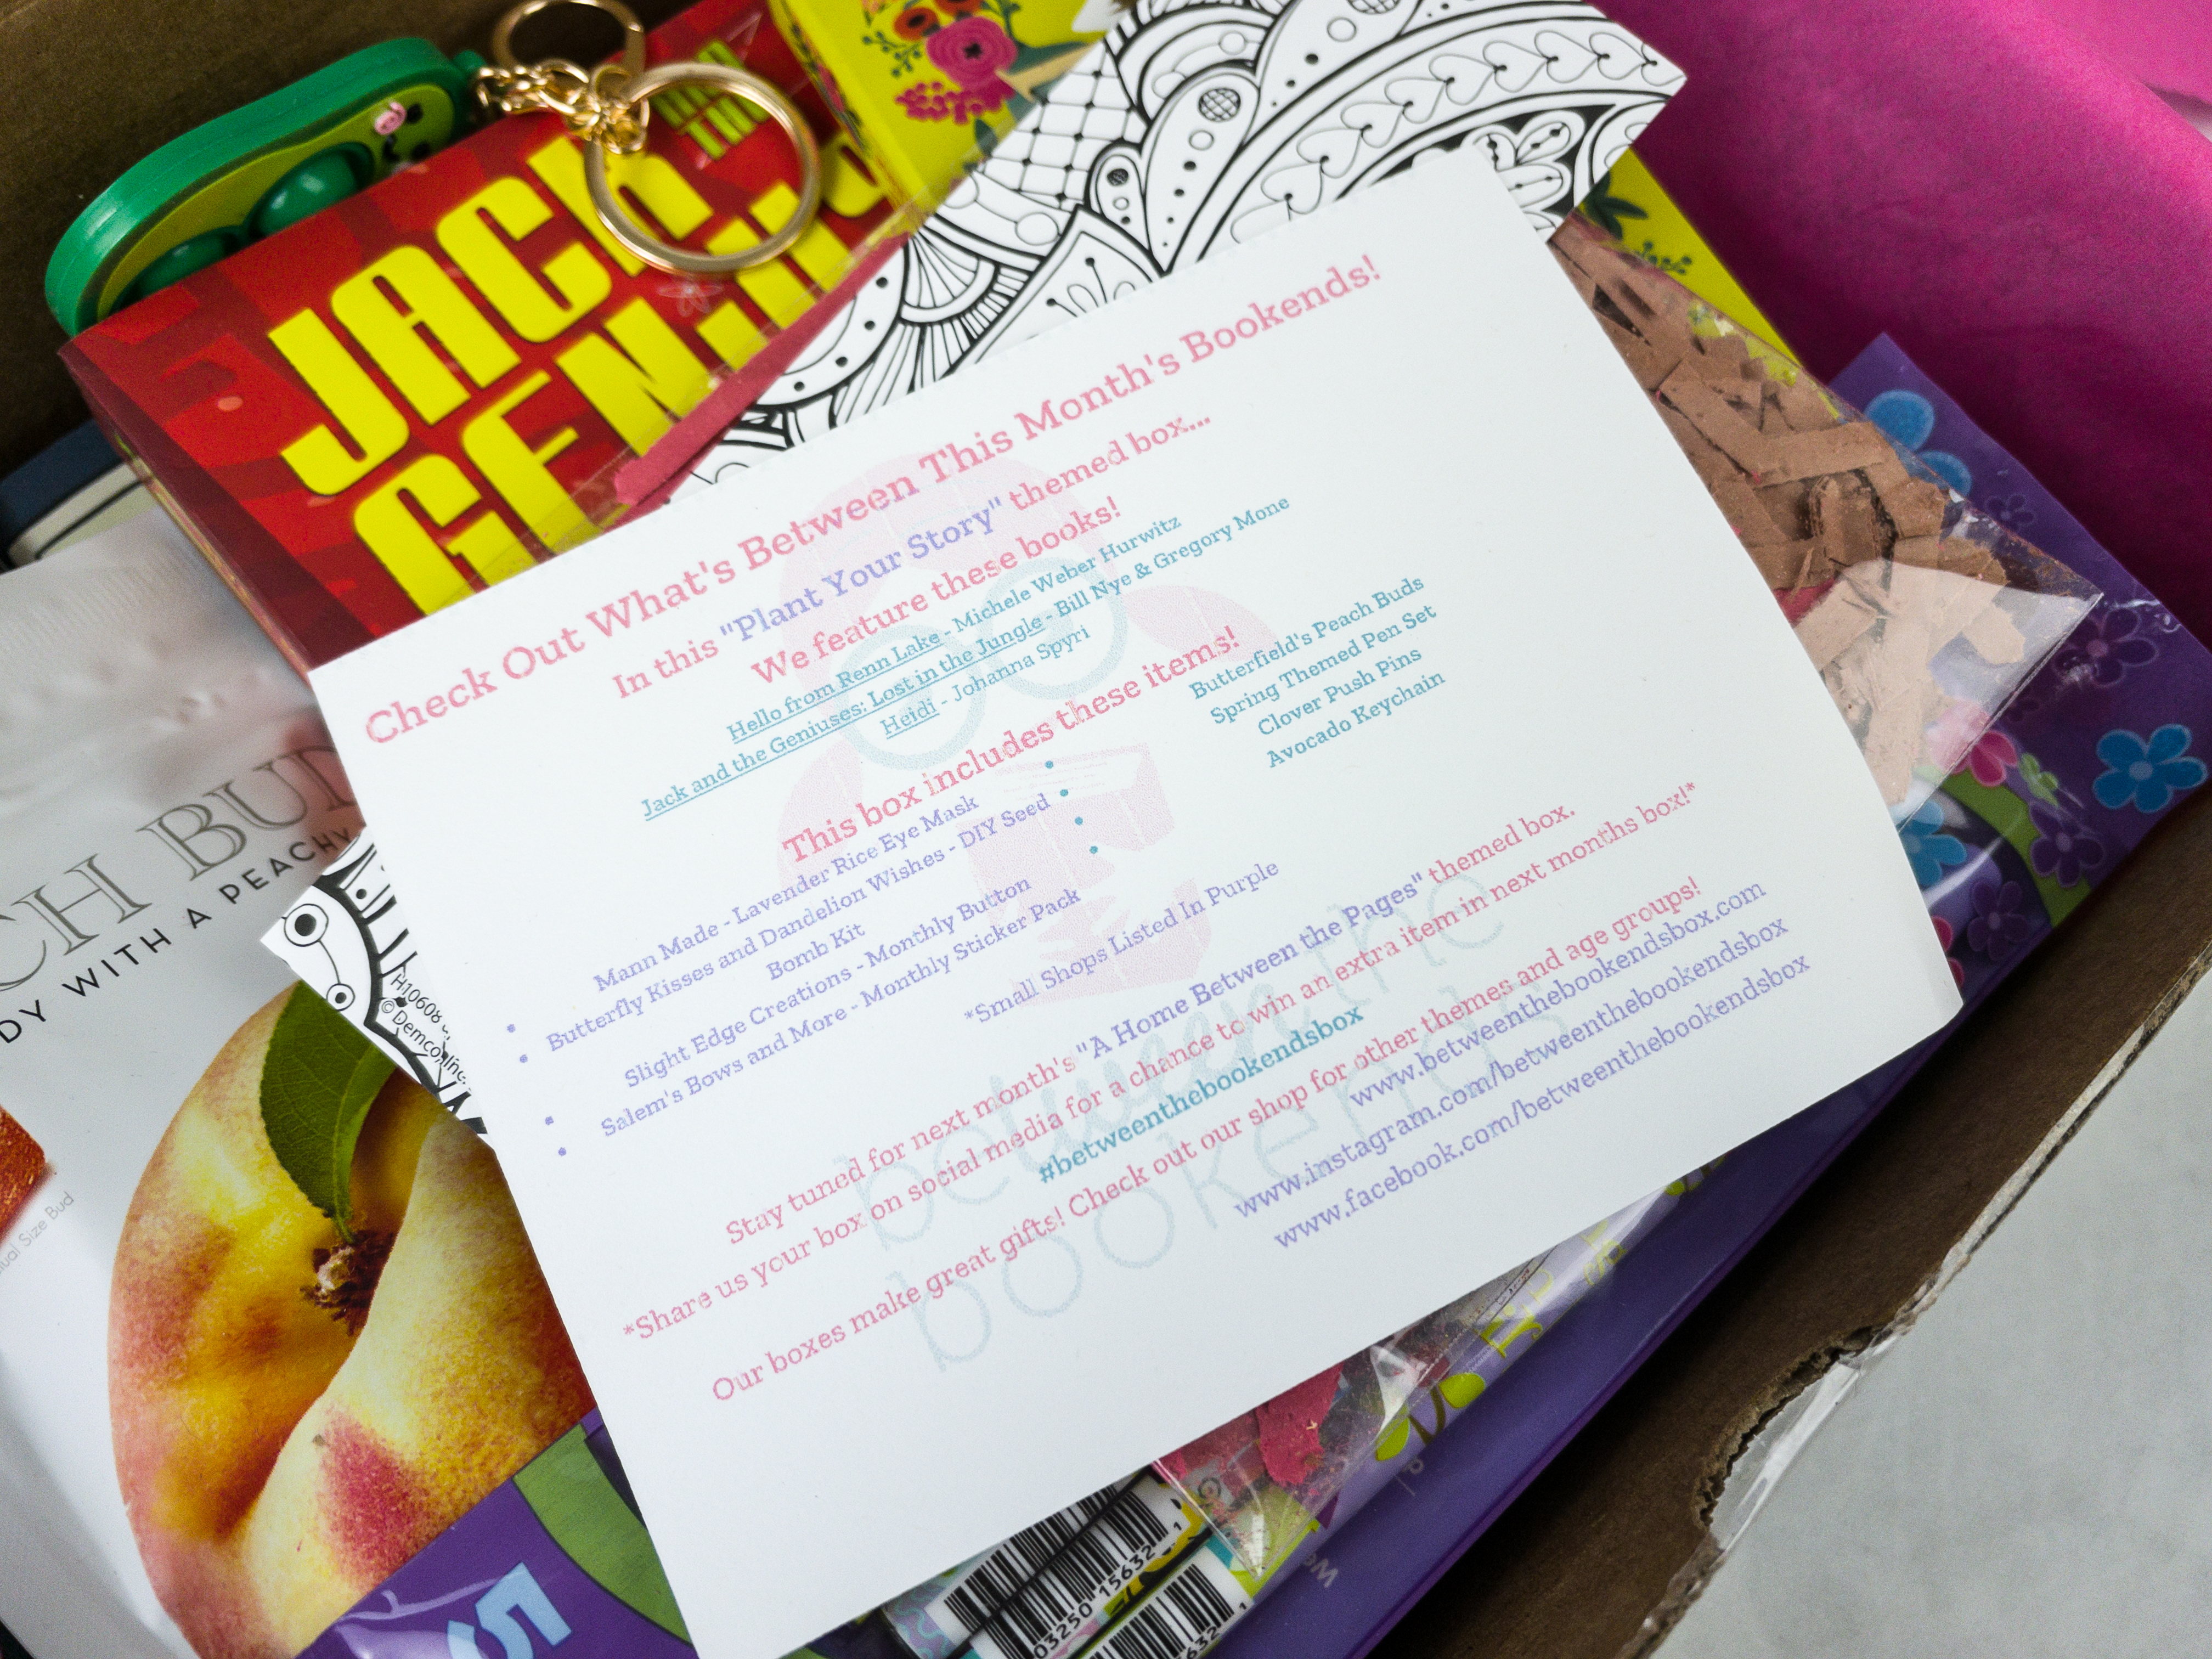 JACK
AND THE
GENIUS
Check Out What's Between This Month's Bookends!
In this "Plant Your Story" themed box...
We feature these books!
Hello from Renn Lake - Michele Weber Hurwitz
Jack and the Geniuses: Lost in the Jungle - Bill Nye & Gregory Mone
Heidi - Johanna Spyri
This box includes these items!
Mann Made - Lavender Rice Eye Mask
Butterfly Kisses and Dandelion Wishes - DIY Seed
Bomb Kit
Slight Edge Creations - Monthly Button
Salem's Bows and More - Monthly Sticker Pack
Butterfield's Peach Buds
Spring Themed Pen Set
Clover Push Pins
Avocado Keychain
*Small Shops Listed In Purple
Stay tuned for next month's "A Home Between the Pages" themed box.
*Share us your box on social media for a chance to win an extra item in next months box!*
#betweenthebookendsbox
Our boxes make great gifts! Check out our shop for other themes and age groups!
www.betweenthebookendsbox.com
www.instagram.com/betweenthebookendsbox
www.facebook.com/betweenthebookendsbox
between the
bookends
CH BUD
DY WITH A PEACHY
Size Bud
H10608
©Demco, Inc.
5
03250 15632 1
632 1